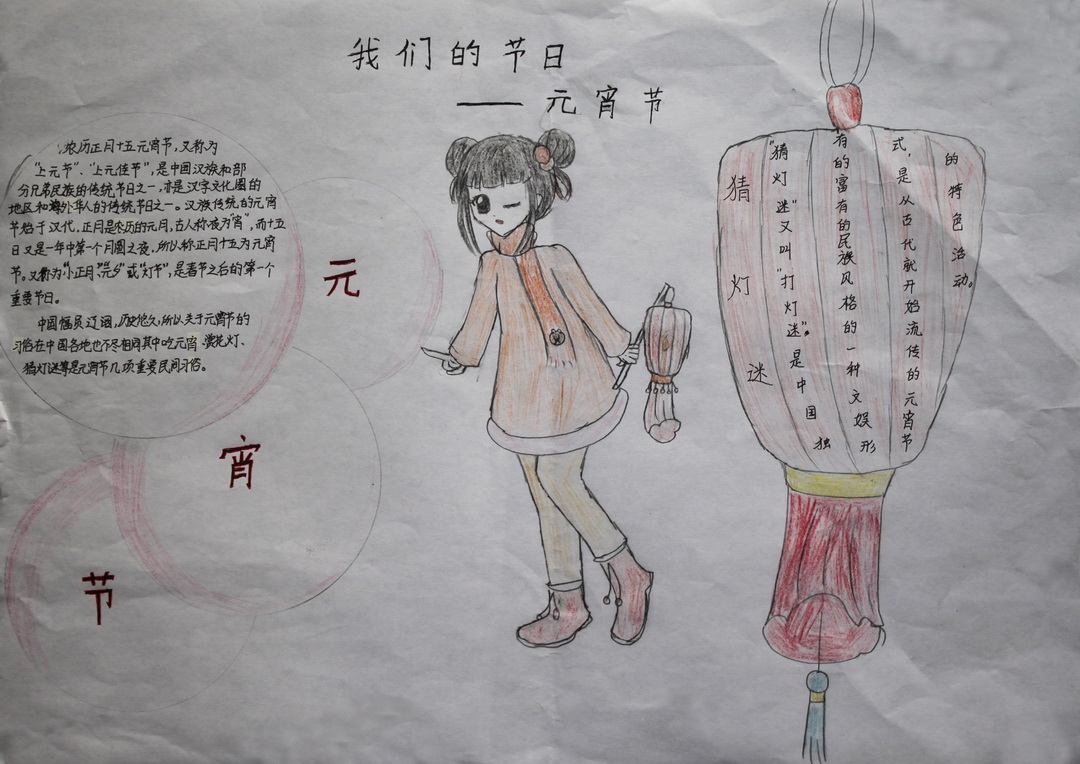 我们的节日
——元宵节
农历正月十五元宵节，又称为
“上元节”、“上元佳节”，是中国汉族和部
分兄弟民族的传统节日之一，亦是汉字文化圈的
地区和海外华人的传统节日之一。汉族传统的元宵
节始于汉代，正月是农历的元月，古人称夜为“宵”，而十五
日又是一年中第一个月圆之夜，所以称正月十五为元宵
节。又称为“小正月”、“元夕”或“灯节”，是春节之后的第一个
重要节日。
中国幅员辽阔，历史悠久，所以关于元宵节的
习俗在中国各地也不尽相同其中吃元宵、赏花灯、
猜灯谜等是元宵节几项重要民间习俗。
元
宵
节
猜灯谜
“猜灯谜”又叫“打灯谜”。是中国独
有的富有的民族风格的一种文娱形
式，是从古代就开始流传的元宵节
的特色活动。